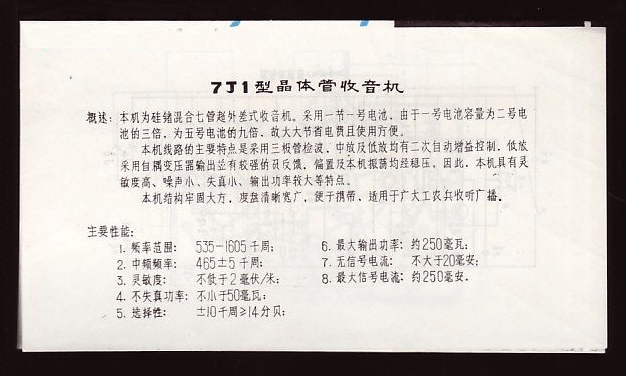 7J1型晶体管收音机
概述：本机为硅锗混合七管超外差式收音机。采用一节一号电池，由于一号电池容量为二号电
池的三倍，为五号电池的九倍，故大大节省电费且使用方便。
本机线路的主要特点是采用三极管检波，中放及低放均有二次自动增益控制，低放
采用自耦变压器输出并有较强的负反馈，偏置及本机振荡均经稳压，因此，本机具有灵
敏度高、噪声小、失真小、输出功率较大等特点。
本机结构牢固大方，度盘清晰宽广，便于携带，适用于广大工农兵收听广播。
主要性能：
1. 频率范围： 535-1605千周；
2. 中频频率： 465±5千周；
3. 灵敏度： 不低于2毫伏/米；
4. 不失真功率： 不小于50毫瓦；
5. 选择性： ±10千周≥14分贝；
6. 最大输出功率：约250毫瓦；
7. 无信号电流： 不大于20毫安；
8. 最大信号电流：约250毫安。